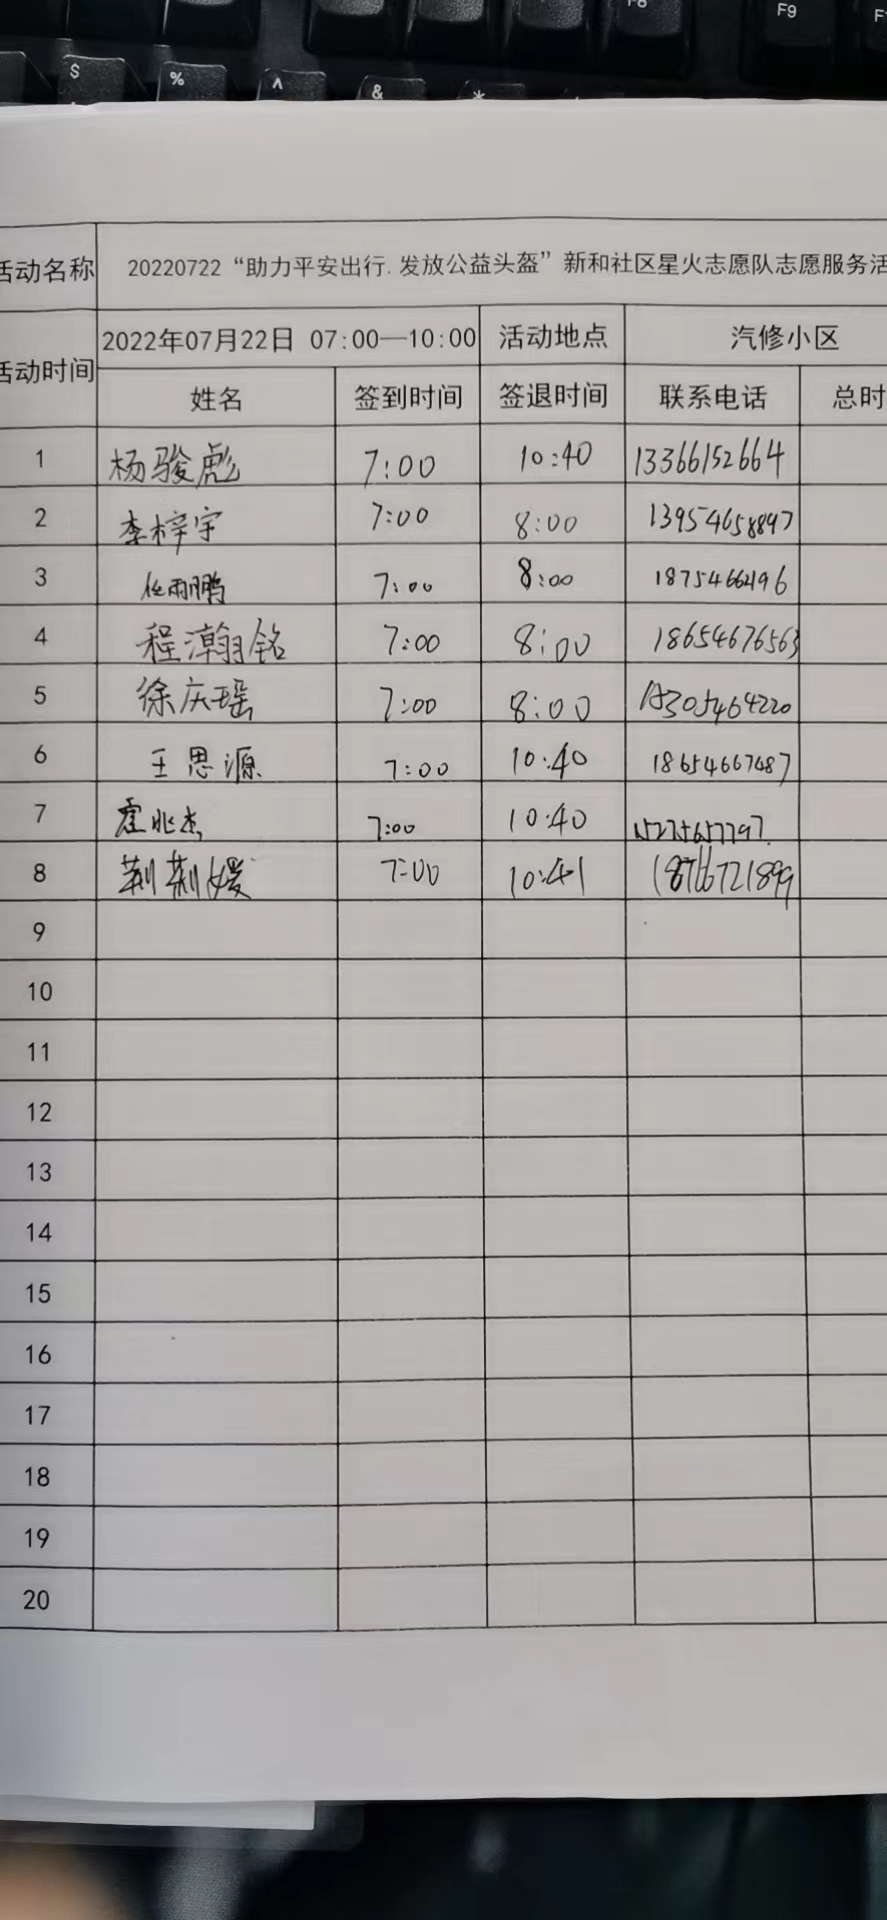 $ % ^ & * F8 F9
活动名称 20220722“助力平安出行.发放公益头盔”新和社区星火志愿队志愿服务活
活动时间 2022年07月22日 07:00—10:00 活动地点 汽修小区
姓名 签到时间 签退时间 联系电话 总时
1 杨骏彪 7:00 10:40 13366152664
2 李梓宇 7:00 8:00 13954658897
3 任雨鹏 7:00 8:00 18754664196
4 程瀚铭 7:00 8:00 18654676563
5 徐庆瑶 7:00 8:00
6 王思源 7:00 10:40 18654667487
7 霍兆杰 7:00 10:40 15275657797
8 荆荆媛 7:00 10:41 18766721899
9
10
11
12
13
14
15
16
17
18
19
20